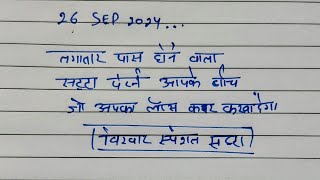 26 SEP 2024...
लगातार पास होने वाला
सट्टा पत्नी आपके बीच
जो आपका लॉस कवर करवाऐगा
विरवार स्पेशल सट्टा